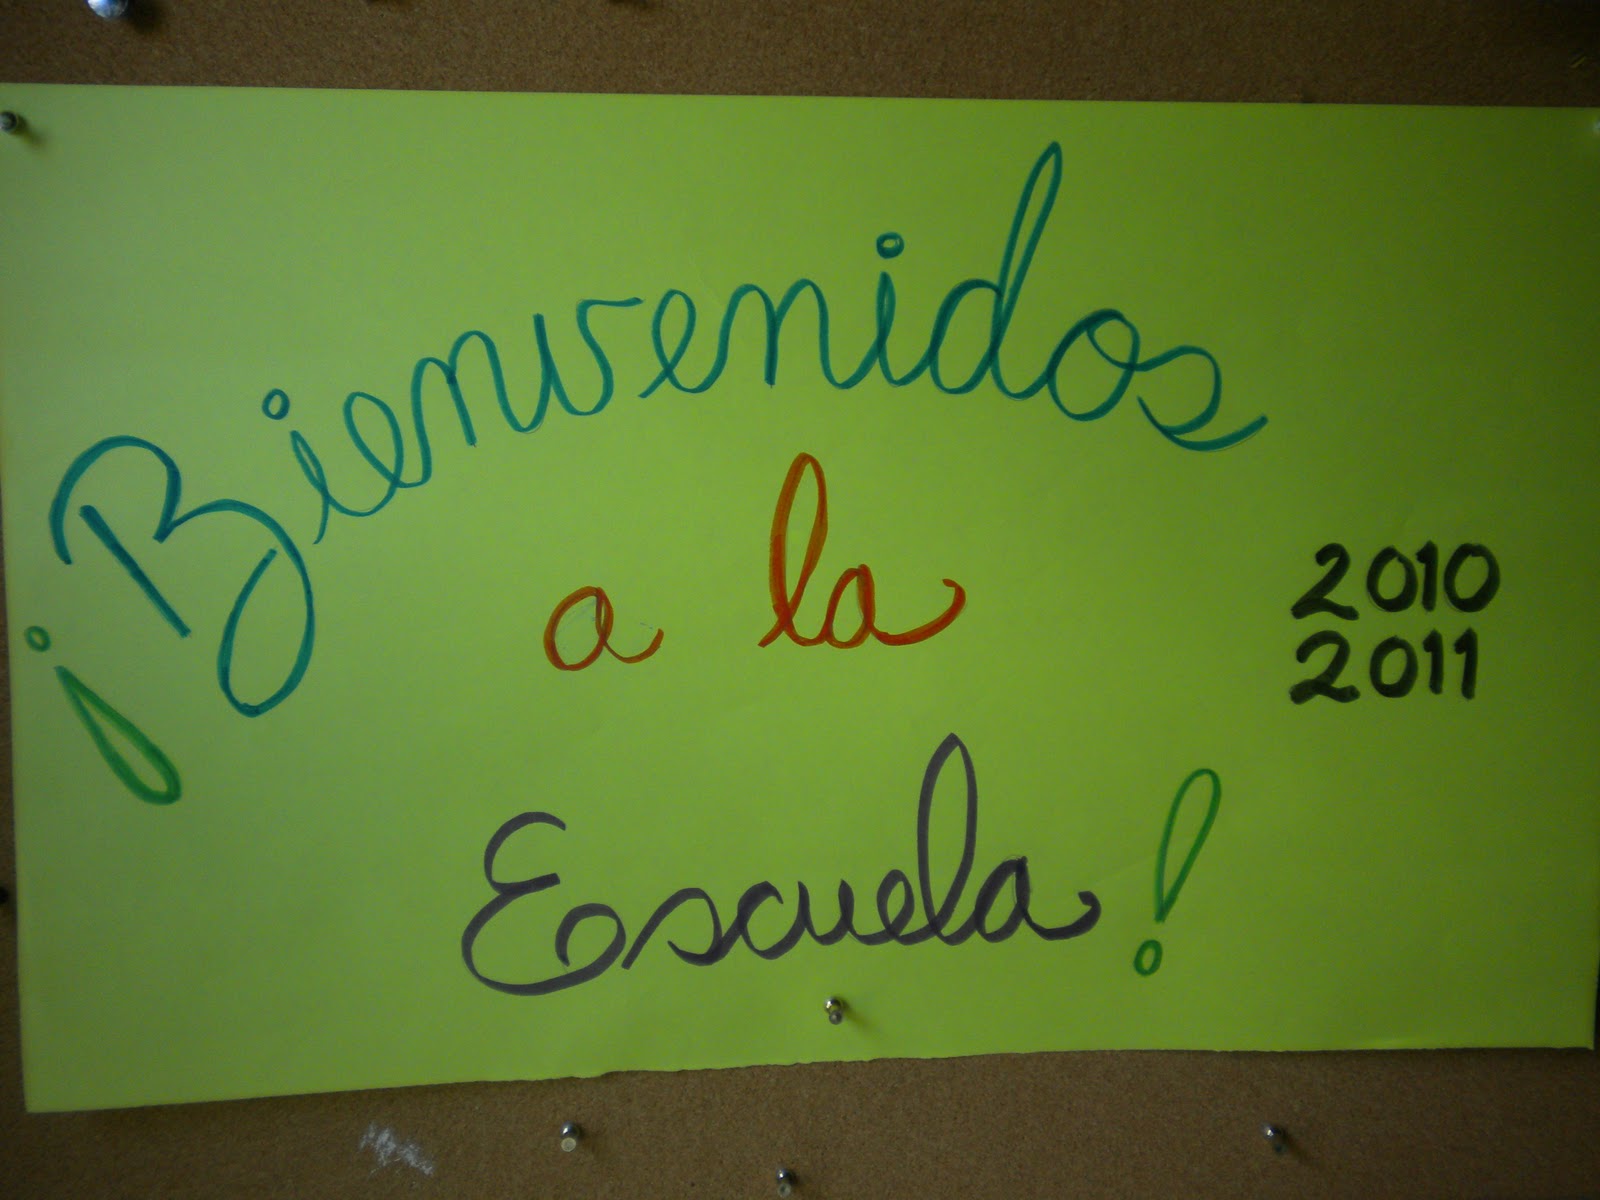 ¡Bienvenidos
a la
Escuela!
2010
2011